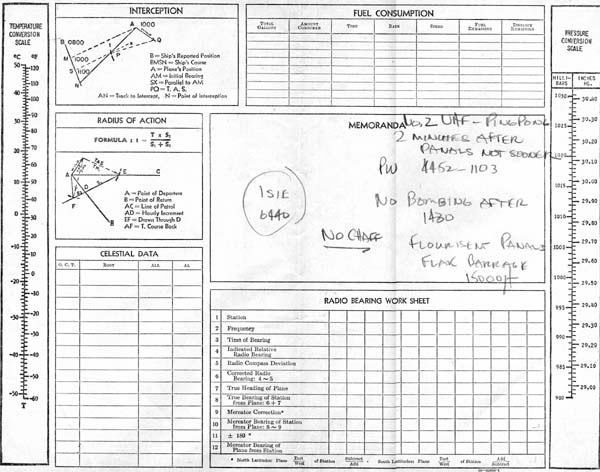 TEMPERATURE
CONVERSION
SCALE
°C °F
INTERCEPTION
A 1000
Q
B 0800
M 1000
S 1100
N
P
B = Ship's Reported Position
BMSN = Ship's Course
A = Plane's Position
AM = Initial Bearing
SX = Parallel to AM
PQ = T. A. S.
AN = Track to Intercept, N = Point of Interception
FUEL CONSUMPTION
TOTAL GALLONS AMOUNT CONSUMED TIME RATE SPEED FUEL REMAINING DISTANCE REMAINING
PRESSURE
CONVERSION
SCALE
MILLI-BARS INCHES HG.
RADIUS OF ACTION
FORMULA : t = T x S₂
S₁ + S₂
A E
D
B
F
A = Point of Departure
B = Point of Return
AC = Line of Patrol
AD = Hourly Increment
EF = Drawn Through D
AF = T. Course Back
MEMORANDA No. 2 UHF - PING PONG
2 MINUTES AFTER
PANALS NOT SOONER
1103
NO BOMBING AFTER
1430
NO CHAFF
FLOURISENT PANALS
FLAK BARRAGE
15000ft
6440
CELESTIAL DATA
G. C. T. BODY ALT. AZ.
RADIO BEARING WORK SHEET
1 Station
2 Frequency
3 Time of Bearing
4 Indicated Relative
Radio Bearing
5 Radio Compass Deviation
6 Corrected Radio
Bearing: 4 ~ 5
7 True Heading of Plane
8 True Bearing of Station
from Plane: 6 + 7
9 Mercator Correction*
10 Mercator Bearing of Station
from Plane: 8 ~ 9
11 ± 180 °
12 Mercator Bearing of
Plane from Station
* North Latitudes: Plane East West of Station Subtract Add - South Latitudes: Plane East West of Station Add Subtract
50 120
110
40
100
30
90
80
70
20
60
10
50
40
0
30
20
-10
10
-20
0
-10
-30
-20
-30
-40
-40
-50
-50
-60
T
1030
1025
1020
1015
1010
1005
1001
995
990
985
980
30.40
30.30
30.20
30.10
30.00
29.90
29.80
29.70
29.60
29.50
29.40
29.30
29.20
29.10
29.00